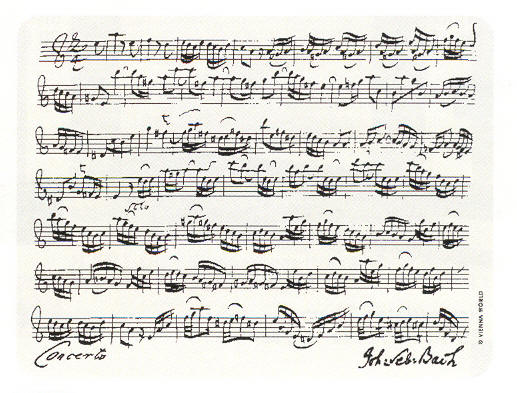 Concerto
Joh. Seb. Bach
© VIENNA WORLD